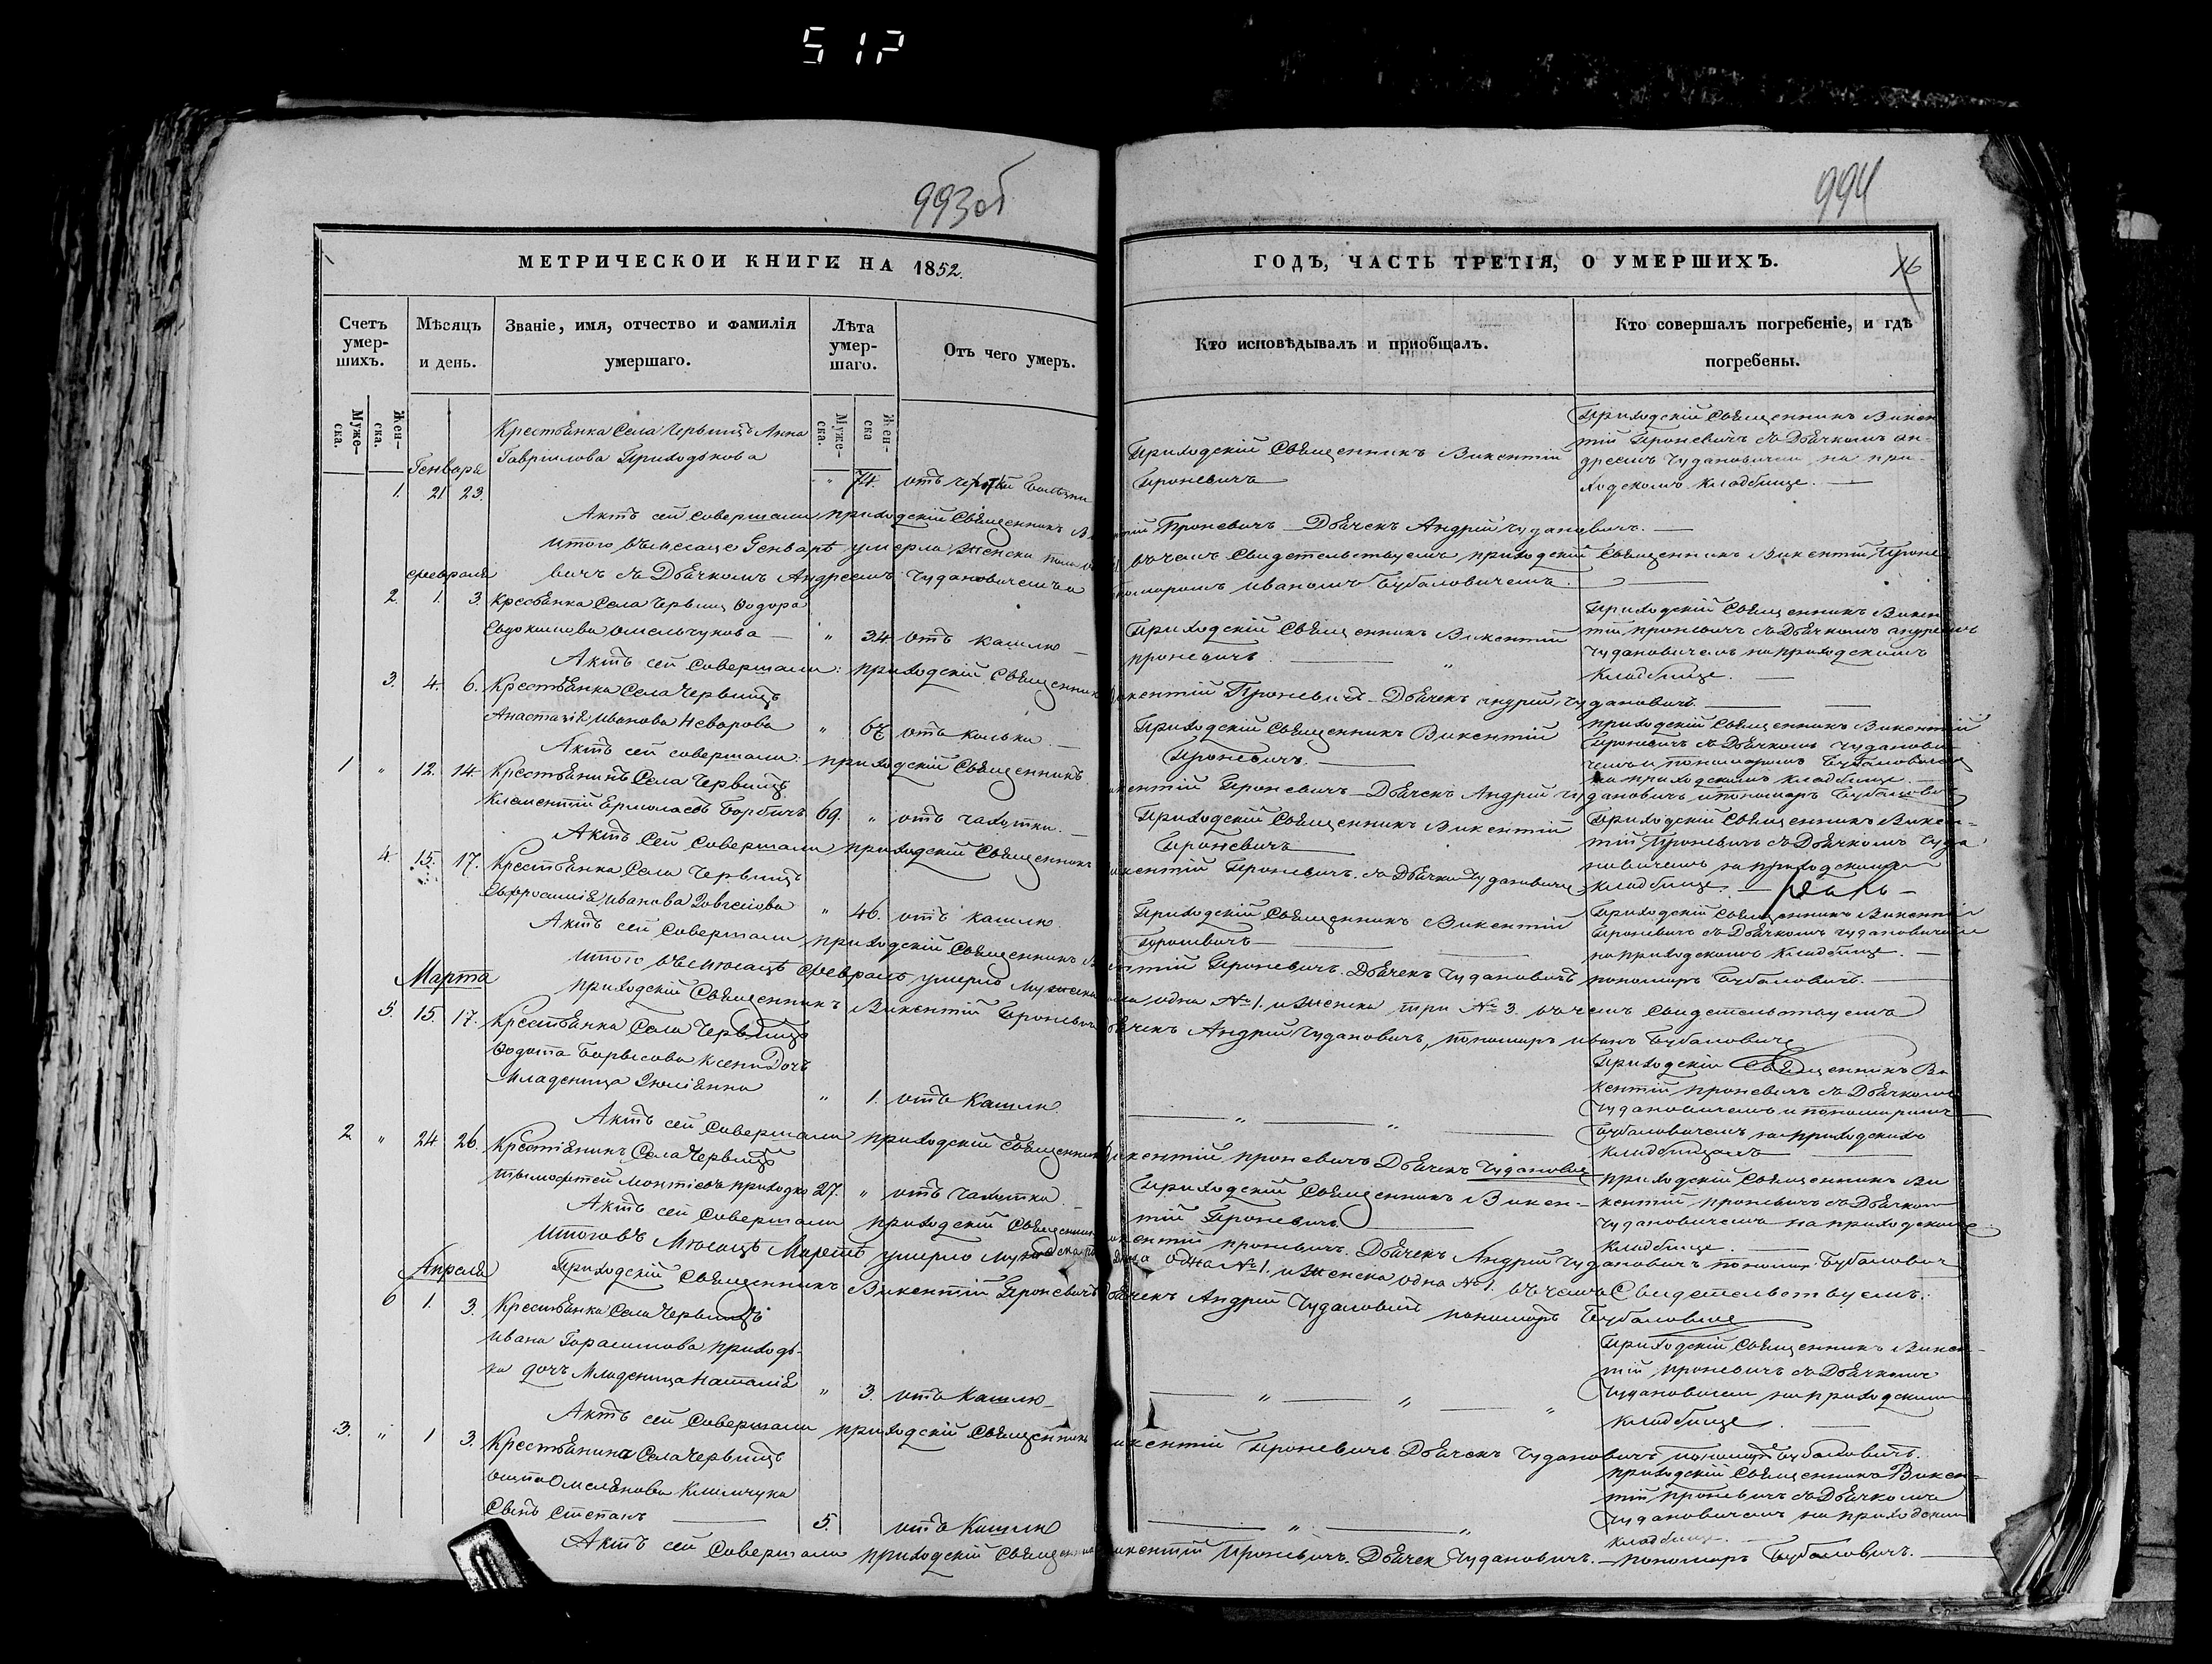 512
993об
994
МЕТРИЧЕСКОЙ КНИГИ НА 1852.
ГОДЪ, ЧАСТЬ ТРЕТІЯ, О УМЕРШИХЪ.
16
Счетъ умер-шихъ.
Мѣсяцъ и день.
Званіе, имя, отчество и фамилія умершаго.
Лѣта умер-шаго.
Отъ чего умеръ.
Кто исповѣдывалъ и пріобщалъ.
Кто совершалъ погребеніе, и гдѣ погребены.
Муже-ска.
Жен-ска.
Муже-ска.
Жен-ска
Генваря
1. 21 23.
Крестьянка Села Червищъ Анна
Гавріилова Приходькова
" 74. отъ болѣзни
Приходскій Священникъ Викентій
Проневичъ
Приходскій Священникъ Викен
тій Проневичъ съ Дьячкомъ Ан-
дреемъ Чудановичем на при-
ходскомъ кладбище.
Актъ сей совершали приходскій Священникъ Ви
тій Проневичъ Дьячекъ Андрій Чудановичъ.
Итого въ месяце Генварѣ умерла женска
въ чемъ свидетельствуемъ приходскій Священникъ Викентій Проне
вичъ съ Дьячкомъ Андреемъ Чудановичемъ и
пономаромъ Иваномъ Бубаловичемъ.
февраля
2. 1. 3. Крестьянка Села Червищ Ѳодора
Евдокимова Омельчукова " 34 отъ кашлю
Приходскій Священникъ Викентій
Проневичъ.
Приходскій Священникъ Викен
тій Проневичъ съ Дьячкомъ Андреемъ
Чудановичемъ на приходскомъ
Кладбище.
Актъ сей совершали: приходскій Священник
икентій Проневичъ Дьячекъ Андрій Чудановичъ.
3. 4. 6. Крестьянка Села Червищъ
Анастазія Иванова " отъ колька.
Приходскій Священникъ Викентій
Проневичъ.
Приходскій Священникъ Викентій
Проневичъ съ Дьячкомъ Чуданови
чемъ и пономаромъ Бубаловичем
на приходскомъ кладбище.
Актъ сей совершали: приходскій Священникъ
кентій Проневичъ Дьячекъ Андрій Чудановичъ и пономаръ Бубаловичъ
1 " 12. 14. Крестьянинъ Села Червищъ
Климентій Ермолаевъ 69. " отъ чахотки.
Приходскій Священникъ Викентій
Проневичъ
Приходскій Священникъ Викен-
тій Проневичъ съ Дьячкомъ Чуда
новичемъ на приходскомъ
кладбище.
Актъ сей совершали приходскій Священникъ
икентій Проневичъ. съ Дьячком Чудановичем
4. 15. 17. Крестьянка Села Червищъ
Евфросинія Иванова " 46. отъ кашлю.
Приходскій Священникъ Викентій
Проневичъ
Приходскій Священникъ Викентій
Проневичъ съ Дьячкомъ Чудановичем
на приходскомъ Кладбище.
Актъ сей совершали приходскій Священникъ Ви
нтій Проневичъ. Дьячекъ Чудановичъ пономаръ Бубаловичъ.
Итого въ месяцѣ Февралѣ умерло мужеска
одна № 1. и женска три № 3. въ чемъ свидетельствуемъ
приходскій Священникъ Викентій Проневичъ
Дьячекъ Андрій Чудановичъ, пономаръ Иванъ Бубаловичъ
Марта
5. 15. 17. Крестьянка Села Червищъ
Ѳодота Борысова Дочь
Младеница Юліянна " 1. отъ Кашлю.
Приходскій Священникъ Ви
кентій Проневичъ съ Дьячкомъ
Чудановичемъ и пономаромъ
Бубаловичемъ на приходскомъ
кладбищемъ
Актъ сей совершали приходскій Священникъ
икентій Проневичъ Дьячекъ Чудановичъ
2 " 24 26. Крестіянинъ Села Червищъ
Тымофтей Приходко 27. " отъ чахотки
Приходскій Священникъ Викен-
тій Проневичъ
приходскій Священникъ Ви
кентій Проневичъ съ Дьячком
Чудановичемъ на приходском
кладбище.
Актъ сей совершали приходскій Священник
икентій Проневичъ. Дьячекъ Андрій Чудановичъ пономаръ Бубаловичъ
Итого въ Месяцѣ Мартѣ умерло мужеска
одна № 1. и женска одна № 1. въ чемъ Свидетельствуемъ.
Приходскій Священникъ Викентій Проневичъ
Дьячекъ Андрій Чудановичъ пономаръ Бубаловичъ
Апреля
6 1. 3. Крестьянка Села Червищъ
Ивана Гарасимова Приходь-
ка дочъ Младеница Наталія " 3. отъ Кашлю
Приходскій Священникъ Викен-
тій Проневичъ съ Дьячкомъ
Чудановичем на приходскомъ
кладбище.
Актъ сей совершали приходскій Священникъ
икентій Проневичъ Дьячекъ Чудановичъ пономаръ Бубаловичъ.
3. " 1 3. Крестьянина Села Червищъ
Омеляновa Климчука
Сынъ Степанъ 5. отъ Кашлю
приходскій Священникъ Викен-
тій Проневичъ съ Дьячкомъ
Чудановичемъ на приходском
кладбище.
Актъ сей совершали приходскій Священник
икентій Проневичъ. Дьячек Чудановичъ. пономаръ Бубаловичъ.